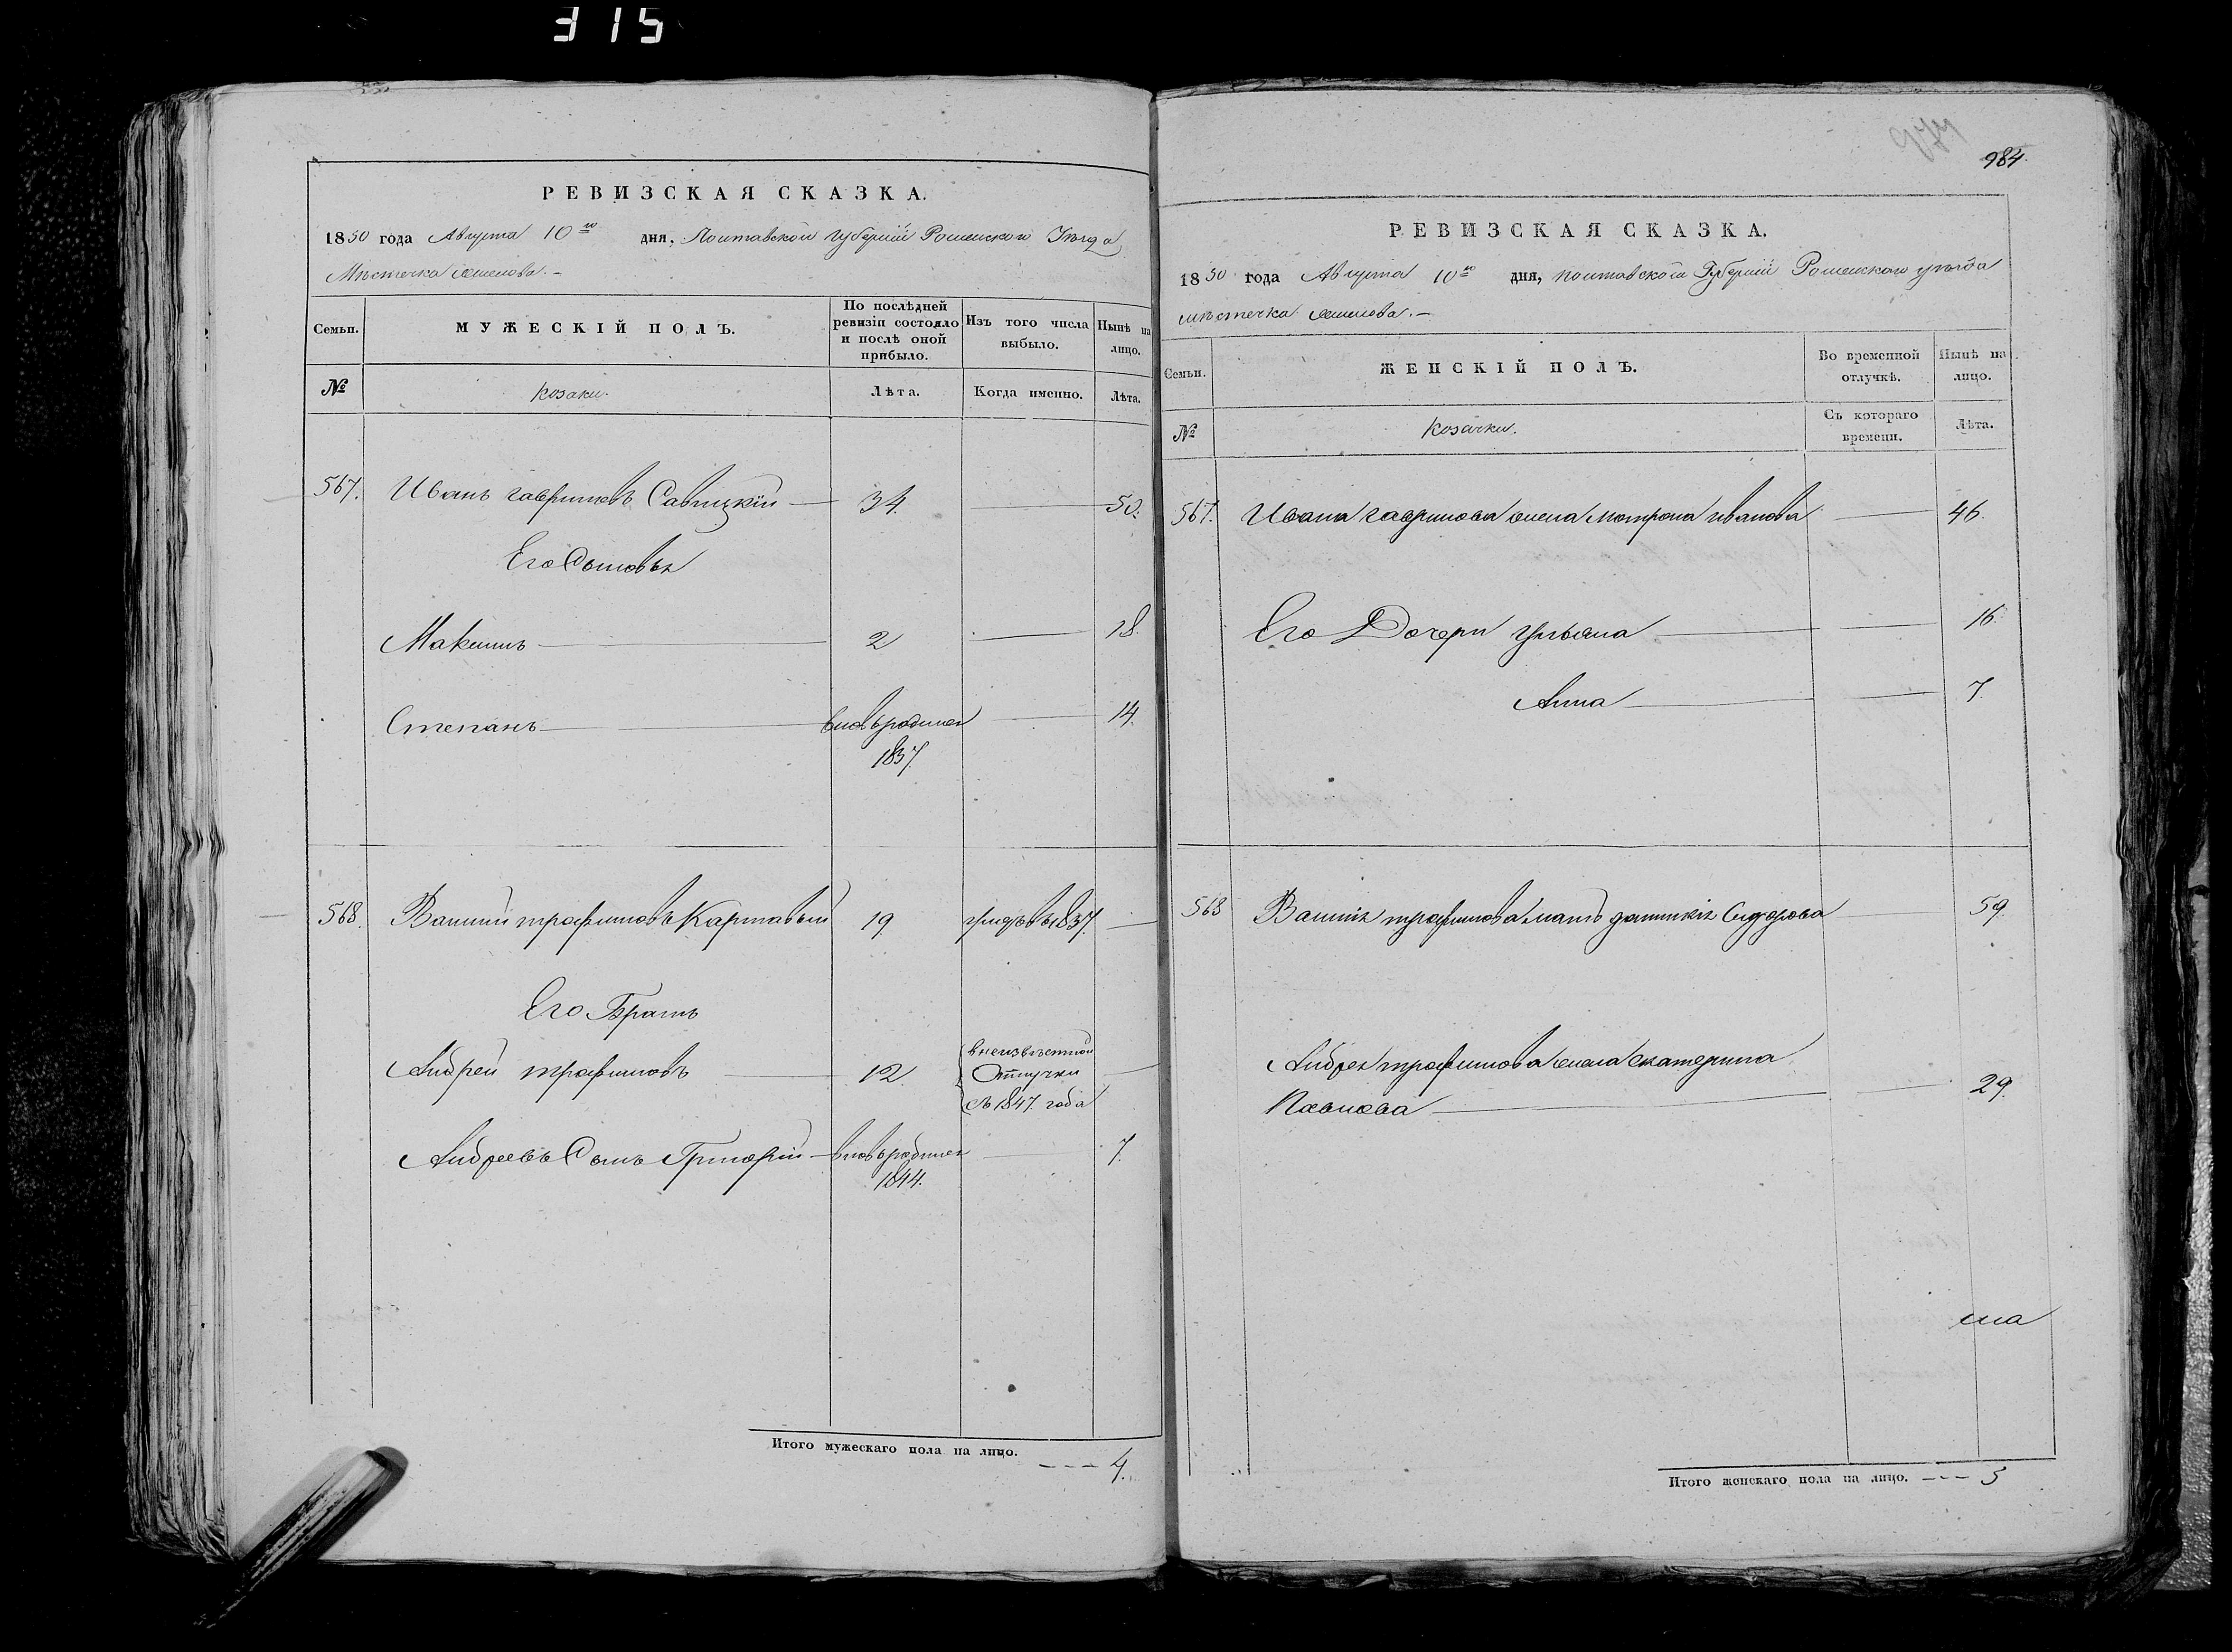 315
РЕВИЗСКАЯ СКАЗКА.
1850 года Августа 10го дня, Полтавской губерніи Роменского Уѣзда
Мѣстечка Смелова. –
Семьи. МУЖЕСКІЙ ПОЛЪ. По послѣдней ревизіи состояло и послѣ оной прибыло. Изъ того числа выбыло. Нынѣ на лицо.
№ Козаки. Лѣта. Когда именно. Лѣта.
567. Иванъ гавриловъ Савицкій — 34. — 50.
Его Сыновья
Максимъ — 2 — 18.
Степанъ — вновьродился — 14.
1837.
568. Василий трофимовъ Картавый 19 умеръ въ 1837. —
Его Братъ
Андрей трофимовъ — 12. внеизвѣстной —
Отлучки
съ 1847. года
Андреевъ Сынъ Григорій — вновьродился — 7.
1844.
Итого мужескаго пола на лицо. --- 4.
974
984.
РЕВИЗСКАЯ СКАЗКА.
1850 года Августа 10го дня, полтавской Губерніи Роменскаго уѣзда
мѣстечка Смелова. –
Семьи. ЖЕНСКІЙ ПОЛЪ. Во временной отлучкѣ. Нынѣ на лицо.
№ Козачки. Съ котораго времени. Лѣта.
567. Ивана гаврилова жена мотрона иванова — 46.
Его Дочери ульяна — — 16.
Анна — — 7
568 Василія трофимова мать Сидорова 59.
Андрея трофимова жена екатерина
Павлова — — 29.
Итого женскаго пола на лицо. --- 5